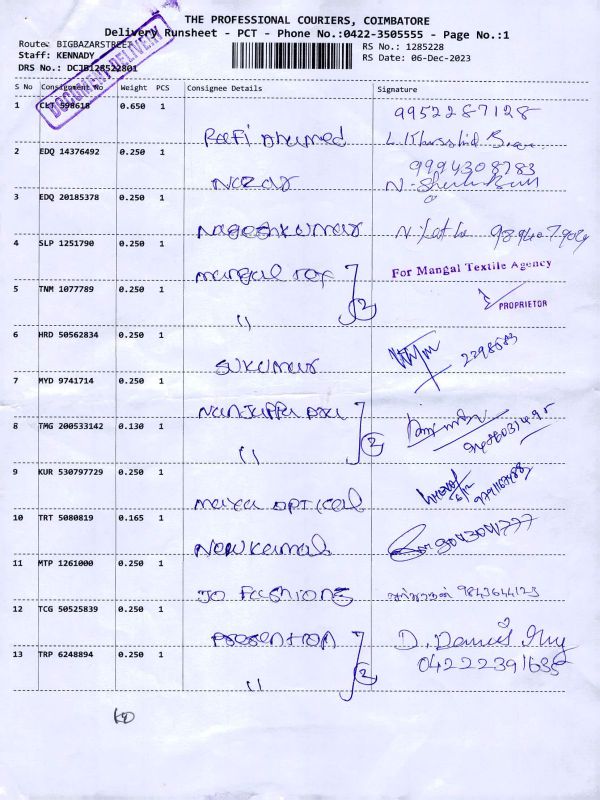 THE PROFESSIONAL COURIERS, COIMBATORE
Delivery Runsheet - PCT - Phone No.:0422-3505555 - Page No.:1
Route: BIGBAZARSTREET
RS No.: 1285228
Staff: KENNADY
RS Date: 06-Dec-2023
DRS No.: DCJB128522801
DOCUMENT DELIVERY
S No Consignment No Weight PCS Consignee Details Signature
1 CLT 598618 0.650 1
Rafi Ahamed
9952287128
2 EDQ 14376492 0.250 1
Nazar
9994308783
3 EDQ 20185378 0.250 1
Nageshkumar
4 SLP 1251790 0.250 1
Mangal
For Mangal Textile Agency
5 TNM 1077789 0.250 1
" 2
PROPRIETOR
6 HRD 50562834 0.250 1
Sukumar
2398683
7 MYD 9741714 0.250 1
Nanjuppa
8 TMG 200533142 0.130 1
" 2
9 KUR 530797729 0.250 1
maya optical
10 TRT 5080819 0.165 1
New Kamal
9043041777
11 MTP 1261000 0.250 1
JO Fashions
9843644123
12 TCG 50525839 0.250 1
D.
13 TRP 6248894 0.250 1
" 2
04222391685